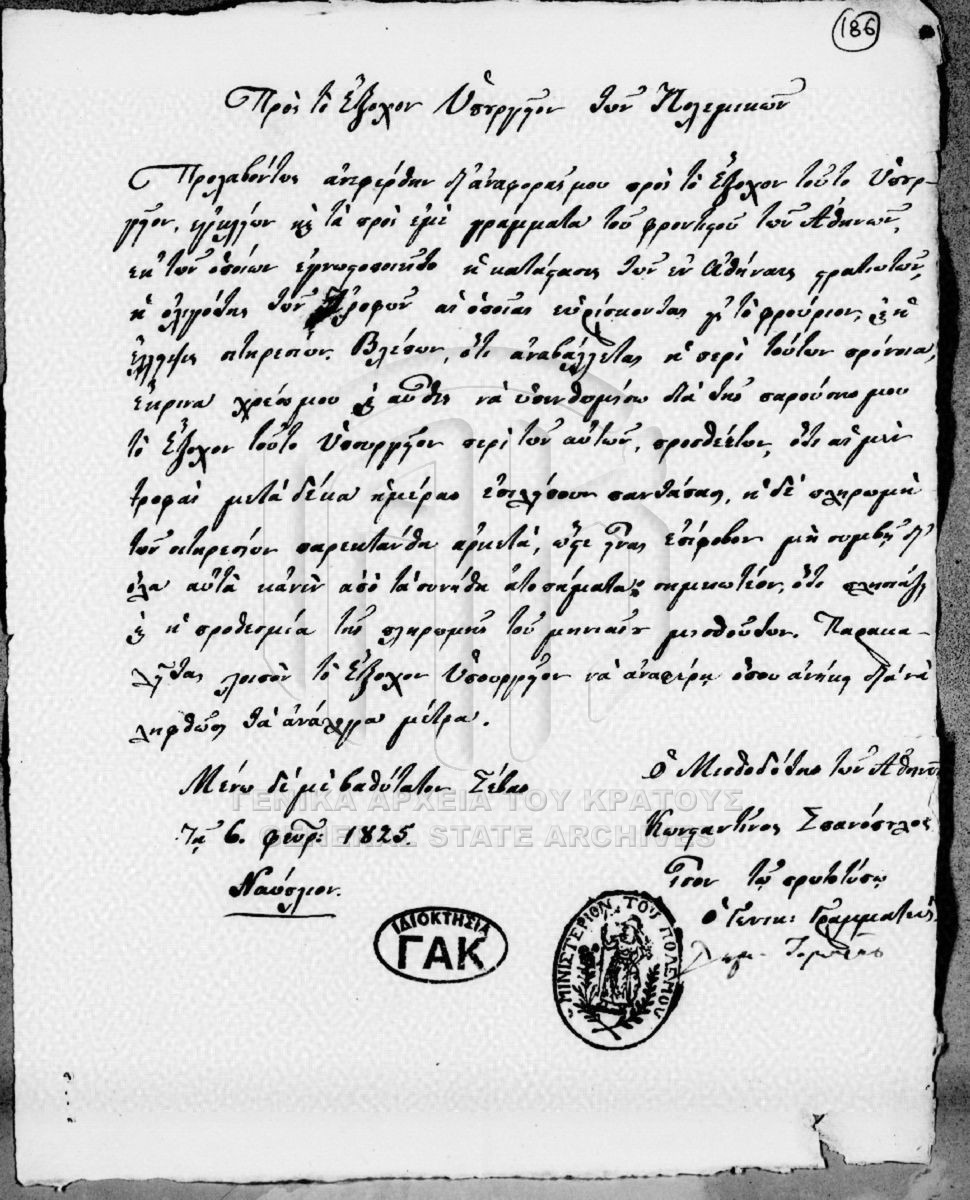 186
Πρὸς τὸ Ἔξοχον Ὑπουργεῖον τῶν Πολεμικῶν
Προλαβόντως ἀνεφέρθην δι' ἀναφορᾶς μου πρὸς τὸ Ἔξοχον τοῦτο Ὑπουρ-
γεῖον, ἐγκλείων κ τὰ πρὸς ἐμὲ γράμματα τοῦ φροντιστοῦ τῶν Ἀθηνῶν,
ἐκ τῶν ὁποίων ἐγνωστοποιεῖτο ἡ κατάστασις τῶν ἐν Ἀθήναις στρατιωτῶν,
ἡ ὀλιγότης τῶν τροφῶν αἱ ὁποῖαι εὑρίσκονται εἰς τὸ φρούριον, κ ἡ
ἔλλειψις σιτηρεσίων. Βλέπων, ὅτι ἀναβάλλεται ἡ περὶ τούτων πρόνοια,
ἔκρινα χρέος μου κ αὖθις νὰ ὑπενθυμίσω διὰ τῆς παρούσης μου
τὸ Ἔξοχον τοῦτο Ὑπουργεῖον περὶ τῶν αὐτῶν, προσθέτων, ὅτι αἱ μὲν
τροφαὶ μετὰ δέκα ἡμέρας ἐκλείπουν πανταπᾶσι, ἡ δὲ πληρωμὴ
τῶν σιτηρεσίων παρεκτάνθη ἀρκετὰ, ὥστε εἶναι ἐπίφοβον μὴ συμβῇ δι'
ὅλα αὐτὰ κανὲν ἀπὸ τὰ συνήθη ἀτοπήματα· σημειωτέον, ὅτι πλησιάζει
κ ἡ προθεσμία τῆς πληρωμῆς τοῦ μηνιαίου μισθοῦ των. Παρακα-
λεῖται λοιπὸν τὸ Ἔξοχον Ὑπουργεῖον νὰ ἀναφέρῃ ὅπου ἀνήκει διὰ νὰ
ληφθῶσι τὰ ἀνάλογα μέτρα.
Μένω δὲ μὲ βαθύτατον σέβας
Τῇ 6. φευρ: 1825.
Ναύπλιον.
ὁ Μισθοδότης τῶν Ἀθηνῶν
Κωνσταντῖνος Σπανόπουλος
Ἴσον τῷ πρωτοτύπῳ
ὁ Γενικ: Γραμματεὺς
ΓΕΝΙΚΑ ΑΡΧΕΙΑ ΤΟΥ ΚΡΑΤΟΥΣ
GENERAL STATE ARCHIVES
ΙΔΙΟΚΤΗΣΙΑ
ΓΑΚ
ΜΙΝΙΣΤΕΡΙΟΝ ΤΟΥ ΠΟΛΕΜΟΥ